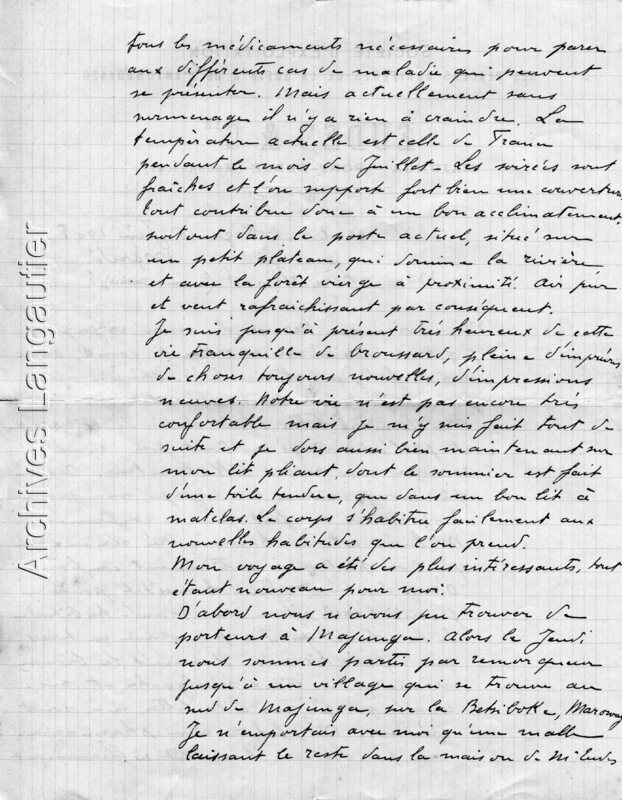 tous les médicaments nécessaires pour parer
aux différents cas de maladie qui peuvent
se présenter. Mais actuellement sans
surmenage il n'y a rien à craindre. La
température actuelle est celle de France
pendant le mois de Juillet. Les soirées sont
fraîches et l'on supporte fort bien une couverture
tout contribue donc à un bon acclimatement,
surtout dans le poste actuel, situé sur
un petit plateau, qui domine la rivière
et avec la forêt vierge à proximité. Air pur
et vent rafraichissant par conséquent.
Je suis jusqu'à présent très heureux de cette
vie tranquille de broussard, pleine d'imprévus
de choses toujours nouvelles, d'impressions
neuves. Notre vie n'est pas encore très
confortable mais je m'y suis fait tout de
suite et je dors aussi bien maintenant sur
mon lit pliant, dont le sommier est fait
d'une toile tendue, que dans un bon lit à
matelas. Le corps s'habitue facilement aux
nouvelles habitudes que l'on prend.
Mon voyage a été des plus intéressants, tout
étant nouveau pour moi.
D'abord nous n'avons pu trouver de
porteurs à Majunga. Alors le Jeudi
nous sommes partis par remorqueur
jusqu'à un village qui se trouve au
sud de Majunga, sur la Betsiboka, Marovay
Je n'emportais avec moi qu'une malle
laissant le reste dans la maison de Mr
Archives Langautier